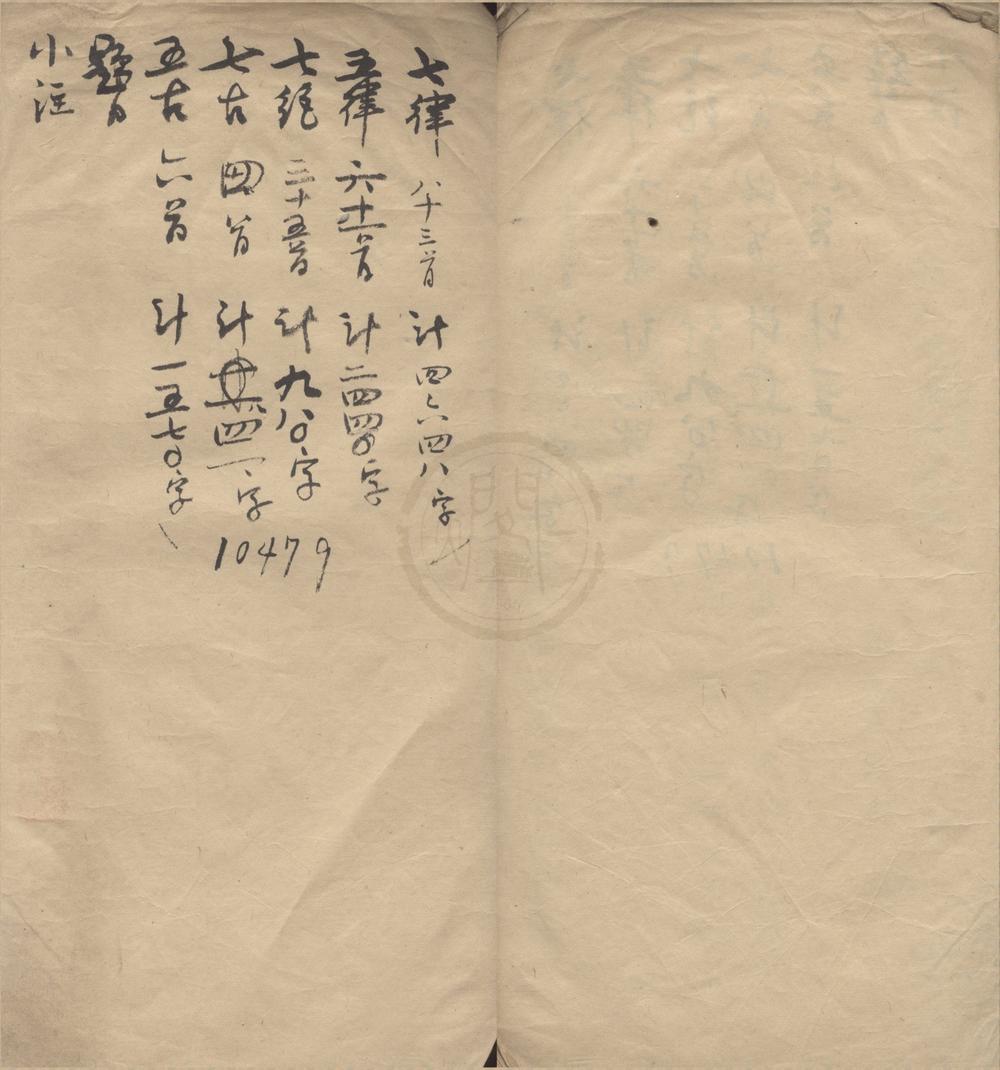 七律 八十三首 計四六四八字
五律 六十一首 計二四四〇字
七絕 三十五首 計九八〇字
七古 四首 計八四一字
五古 六首 計一五七〇字
10479
題目
小注